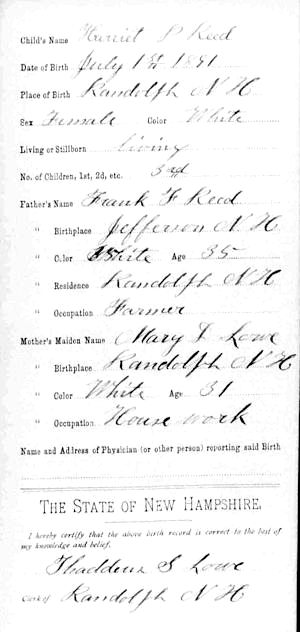 Child's Name Harriet P Reed
Date of Birth July 1st 1891
Place of Birth Randolph N H
Sex Female Color White
Living or Stillborn living
No. of Children, 1st, 2d, etc. 3rd
Father's Name Frank F Reed
" Birthplace Jefferson N H
" Color White Age 35
" Residence Randolph N H
" Occupation Farmer
Mother's Maiden Name Mary Lowe
" Birthplace Randolph N H
" Color White Age 31
" Occupation House work
Name and Address of Physician (or other person) reporting said Birth
THE STATE OF NEW HAMPSHIRE.
I hereby certify that the above birth record is correct to the best of
my knowledge and belief.
Thaddeus S Lowe
Clerk of Randolph N H